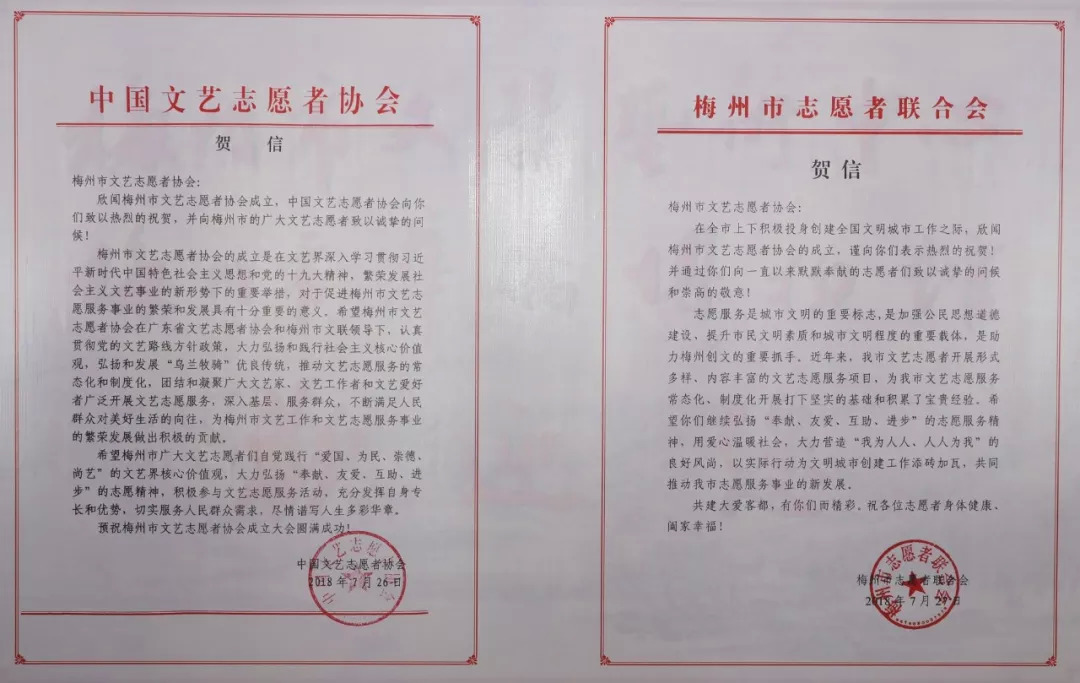 中国文艺志愿者协会
贺 信
梅州市文艺志愿者协会:
欣闻梅州市文艺志愿者协会成立，中国文艺志愿者协会向你
们致以热烈的祝贺，并向梅州市的广大文艺志愿者致以诚挚的问
候！
梅州市文艺志愿者协会的成立是在文艺界深入学习贯彻习近
平新时代中国特色社会主义思想和党的十九大精神，繁荣发展社
会主义文艺事业的新形势下的重要举措，对于促进梅州市文艺志
愿服务事业的繁荣和发展具有十分重要的意义。希望梅州市文艺
志愿者协会在广东省文艺志愿者协会和梅州市文联领导下，认真
贯彻党的文艺路线方针政策，大力弘扬和践行社会主义核心价值
观，弘扬和发展“乌兰牧骑”优良传统，推动文艺志愿服务的常
态化和制度化，团结和凝聚广大文艺家、文艺工作者和文艺爱好
者广泛开展文艺志愿服务，深入基层、服务群众，不断满足人民
群众对美好生活的向往，为梅州市文艺工作和文艺志愿服务事业
的繁荣发展做出积极的贡献。
希望梅州市广大文艺志愿者们自觉践行“爱国、为民、崇德、
尚艺”的文艺界核心价值观，大力弘扬“奉献、友爱、互助、进
步”的志愿精神，积极参与文艺志愿服务活动，充分发挥自身专
长和优势，切实服务人民群众需求，尽情谱写人生多彩华章。
预祝梅州市文艺志愿者协会成立大会圆满成功！
中国文艺志愿者协会
2018年7月26日
梅州市志愿者联合会
贺信
梅州市文艺志愿者协会:
在全市上下积极投身创建全国文明城市工作之际，欣闻
梅州市文艺志愿者协会的成立，谨向你们表示热烈的祝贺！
并通过你们向一直以来默默奉献的志愿者们致以诚挚的问候
和崇高的敬意！
志愿服务是城市文明的重要标志，是加强公民思想道德
建设、提升市民文明素质和城市文明程度的重要载体，是助
力梅州创文的重要抓手。近年来，我市文艺志愿者开展形式
多样、内容丰富的文艺志愿服务项目，为我市文艺志愿服务
常态化、制度化开展打下坚实的基础和积累了宝贵经验。希
望你们继续弘扬“奉献、友爱、互助、进步”的志愿服务精
神，用爱心温暖社会，大力营造“我为人人、人人为我”的
良好风尚，以实际行动为文明城市创建工作添砖加瓦，共同
推动我市志愿服务事业的新发展。
共建大爱客都，有你们而精彩。祝各位志愿者身体健康、
阖家幸福！
梅州市志愿者联合会
梅州市志愿者联合会
2018年7月27日